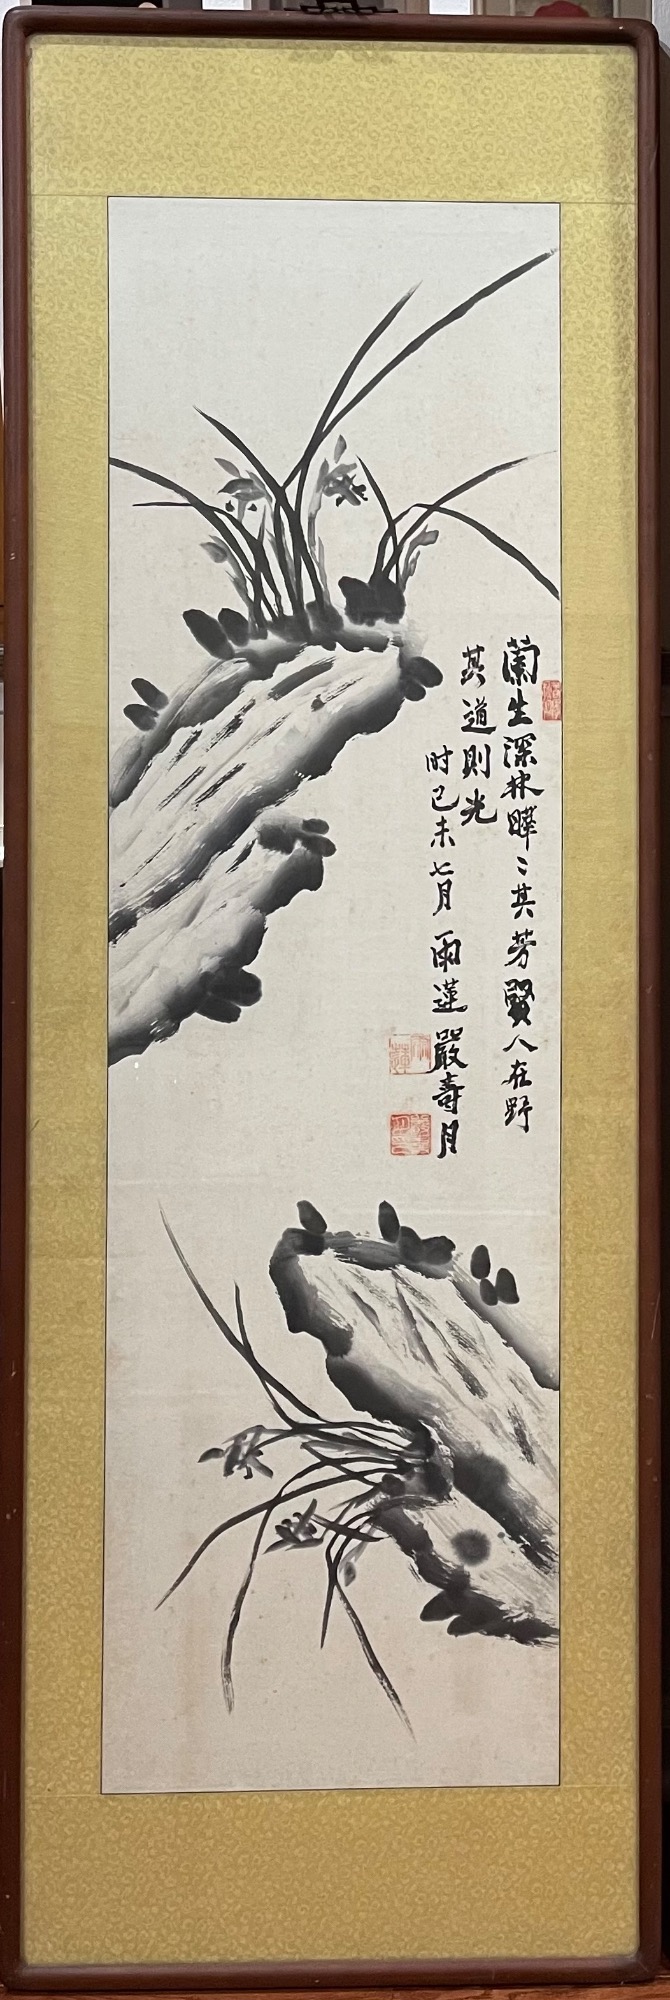 蘭生深林曄〻其芳賢人在野
其道則光
时己未七月雨蓮嚴壽月